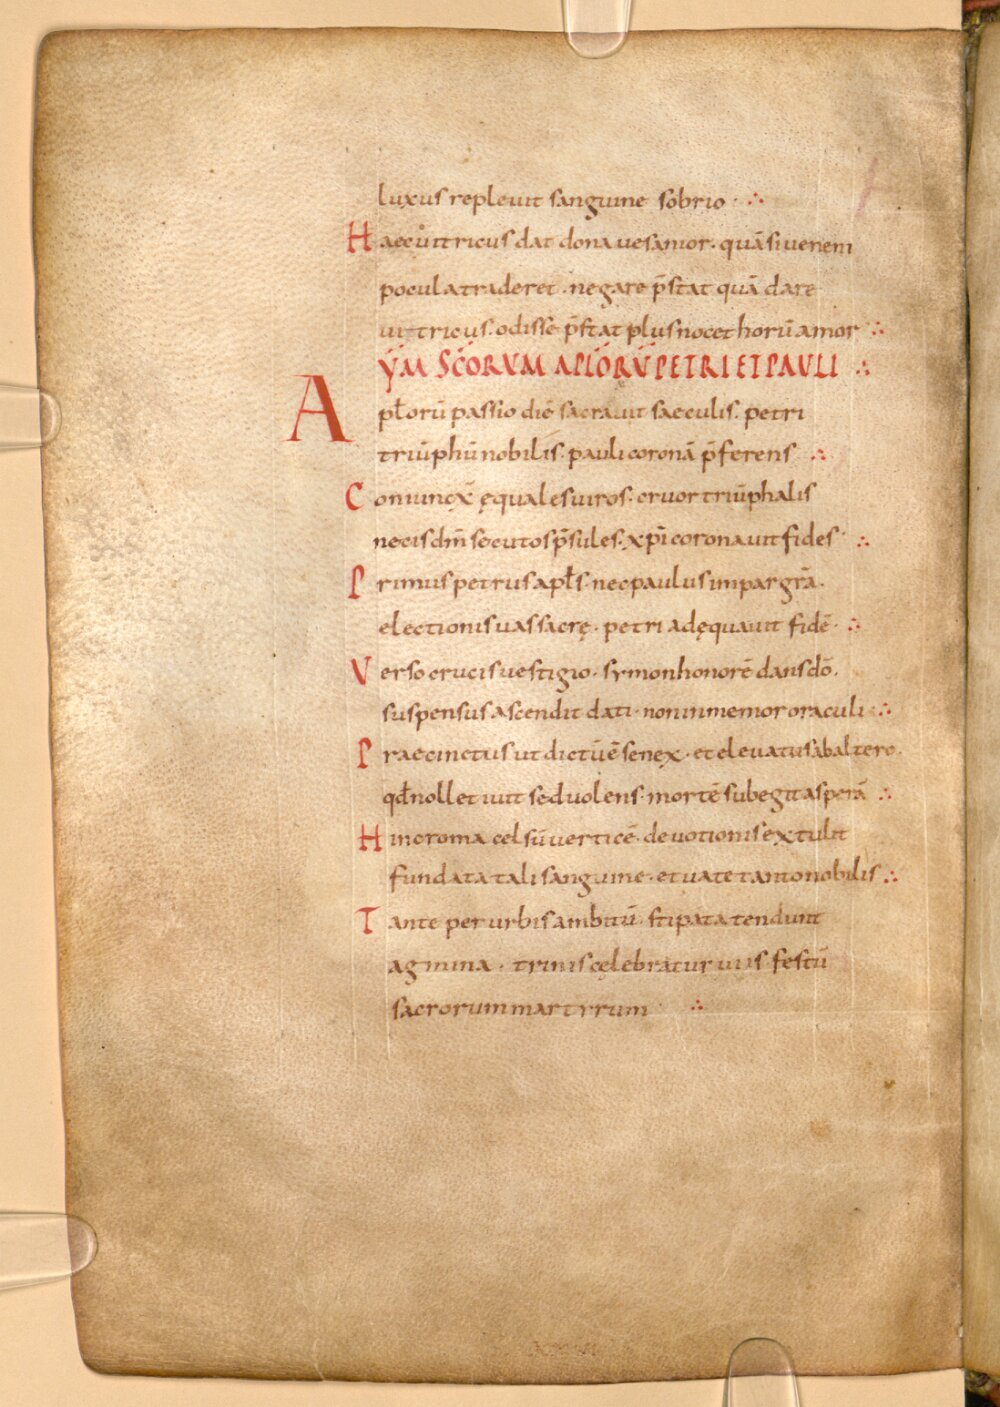 luxus repleuit sanguine sobrio ·
Haec uitricus dat dona uesanior · quā si ueneni
pocula traderet · negare p̄stat quā dare
uitricus · odisse p̄stat plus nocet horū amor
YM̄ SC̄ORVM APLŌRV̄ PETRI ET PAVLI
Apƚorū passio diē sacrauit saeculis · petri
triūphū nobilis · pauli coronā p̄ferens
Coniunx̄ ęquales uiros · cruor triūphalis
necis dn̄i secutos p̄sules · xp̄i coronauit fides ·
Primus petrus apƚs · nec paulus impar grā ·
electionis uas sacrę · petri adęquauit fidē ·
Verso crucis uestigio · symon honorē dans dō ·
suspensus ascendit dati · non inmemor oraculi
Praecinctus ut dictū ē senex · et eleuatus ab altero ·
qđ nollet iuit sed uolens · mortē subegit asperā
Hinc roma celsū uerticē · deuotionis extulit
fundata tali sanguine · et uate tanto nobilis
Tante per urbis ambitū · stipata tendunt
agmina · trinis celebratur uiis · festū
sacrorum martyrum